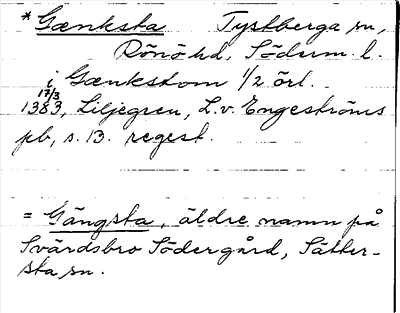 *Gænksta Tystberga sn,
Rönö hd, Söderm. l.
i Gænkstom 1/2 örl.
17/3
1383, Liljegren, L. v. Engeströms
pb, s. 13. regest.
= Gängsta, äldre namn på
Svärdsbro Södergård, Sätter-
sta sn.